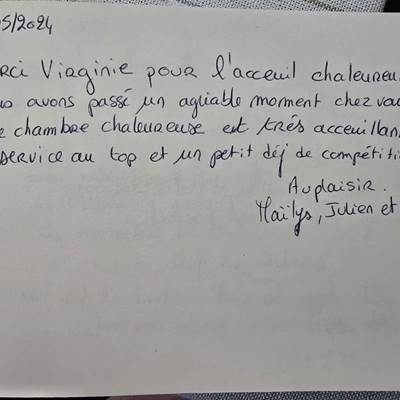 05/2024
rci Virginie pour l'acceuil chaleureu
us avons passé un agréable moment chez vou
e chambre chaleureuse est très acceuillan
service au top et un petit déj de compétiti
Au plaisir.
Maïlys, Julien et